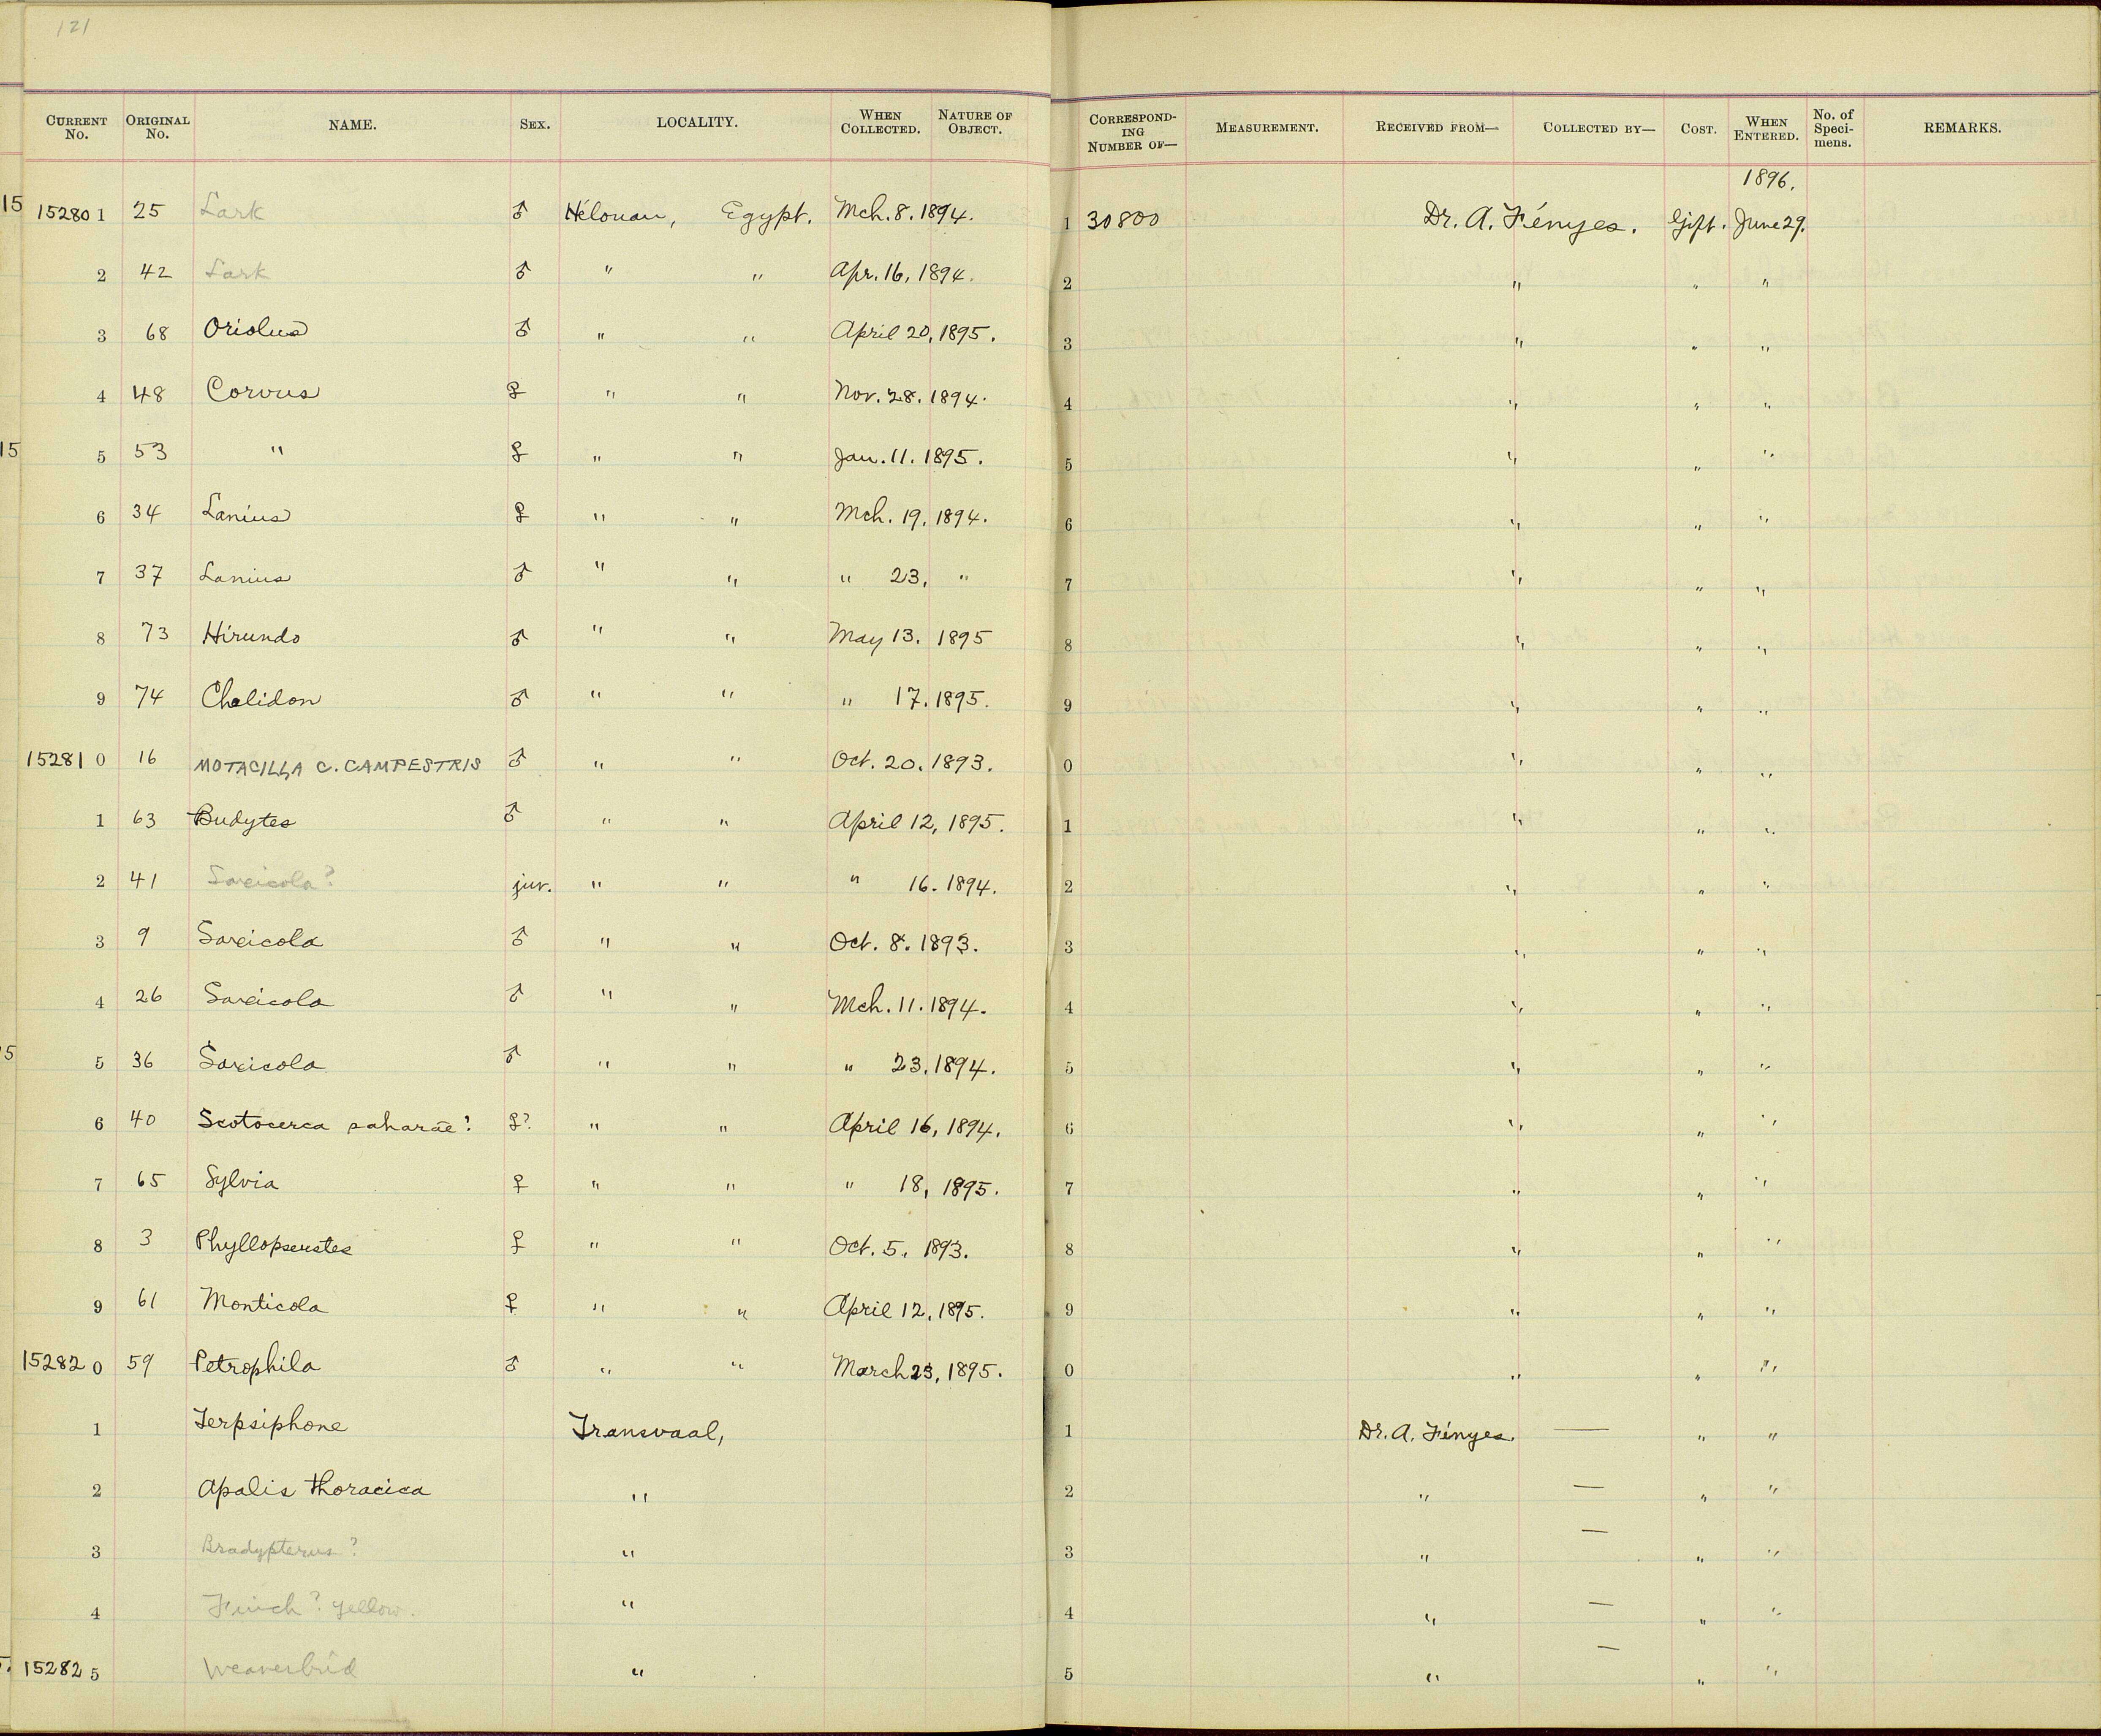 121
CURRENT No. ORIGINAL No. NAME. SEX. LOCALITY. WHEN COLLECTED. NATURE OF OBJECT. CORRESPONDING NUMBER OF— MEASUREMENT. RECEIVED FROM— COLLECTED BY— COST. WHEN ENTERED. No. of Specimens. REMARKS.
1896.
15 15280 1 25 Lark ♂ Hélouan, Egypt. Mch. 8. 1894. 1 30800 Dr. A. Fényes. Gift. June 29.
2 42 Lark ♂ " " Apr. 16, 1894. 2 " " "
3 68 Oriolus ♂ " " April 20, 1895. 3 " " "
4 48 Corvus ♀ " " Nov. 28. 1894. 4 " " "
15 5 53 " ♀ " " Jan. 11. 1895. 5 " " "
6 34 Lanius ♀ " " Mch. 19, 1894. 6 " " "
7 37 Lanius ♂ " " " 23, " 7 " " "
8 73 Hirundo ♂ " " May 13. 1895 8 " " "
9 74 Chelidon ♂ " " " 17. 1895. 9 " " "
15281 0 16 MOTACILLA C. CAMPESTRIS ♂ " " Oct. 20. 1893. 0 " " "
1 63 Budytes ♂ " " April 12, 1895. 1 " " "
2 41 Saxicola? juv. " " " 16. 1894. 2 " " "
3 9 Saxicola ♂ " " Oct. 8. 1893. 3 " " "
4 26 Saxicola ♂ " " Mch. 11. 1894. 4 " " "
5 5 36 Saxicola ♂ " " " 23. 1894. 5 " " "
6 40 Scotocerca saharae? ♀? " " April 16, 1894. 6 " " "
7 65 Sylvia ♀ " " " 18, 1895. 7 " " "
8 3 Phyllopseustes ♀ " " Oct. 5. 1893. 8 " " "
9 61 Monticola ♀ " " April 12, 1895. 9 " " "
15282 0 59 Petrophila ♂ " " March 23, 1895. 0 " " "
1 Terpsiphone Transvaal, 1 Dr. A. Fényes. — " "
2 Apalis thoracica " 2 " — " "
3 Bradypterus? " 3 " — " "
4 Finch? yellow. " 4 " — " "
15282 5 Weaverbird " 5 " — " "